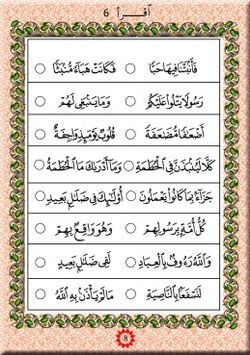 اقرأ 6
فَأَنۢبَتۡنَا فِيهَا حَبّٗا ○ فَكَانَتۡ هَبَآءٗ مُّنۢبَثّٗا ○
رَّسُولٗا يَتۡلُواْ عَلَيۡكُمۡ ○ وَمَا يَنۢبَغِي لَهُمۡ ○
أَضۡعَٰفٗا مُّضَٰعَفَةٗ ○ قُلُوبٞ يَوۡمَئِذٖ وَاجِفَةٌ ○
كَلَّا لَيُنۢبَذَنَّ فِي ٱلۡحُطَمَةِ ○ وَمَآ أَدۡرَىٰكَ مَا ٱلۡحُطَمَةُ ○
جَزَآءَۢ بِمَا كَانُواْ يَعۡمَلُونَ ○ أُوْلَٰٓئِكَ فِي ضَلَٰلِۭ بَعِيدٖ ○
كُلُّ أُمَّةِۭ بِرَسُولِهِمۡ ○ وَهُوَ وَاقِعُۢ بِهِمۡ ○
وَٱللَّهُ رَءُوفُۢ بِٱلۡعِبَادِ ○ لَفِي ضَلَٰلِۭ بَعِيدٍ ○
لَنَسۡفَعَۢا بِٱلنَّاصِيَةِ ○ مَا لَمۡ يَأۡذَنۢ بِهِ ٱللَّهُ ○
8